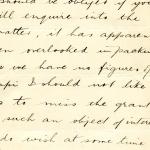 should be obliged if you
will enquire into the
matter, it has apparen
en overlooked in packin
we have no figures f
I should not like
to miss the grant
such an object of inter
do wish at some time